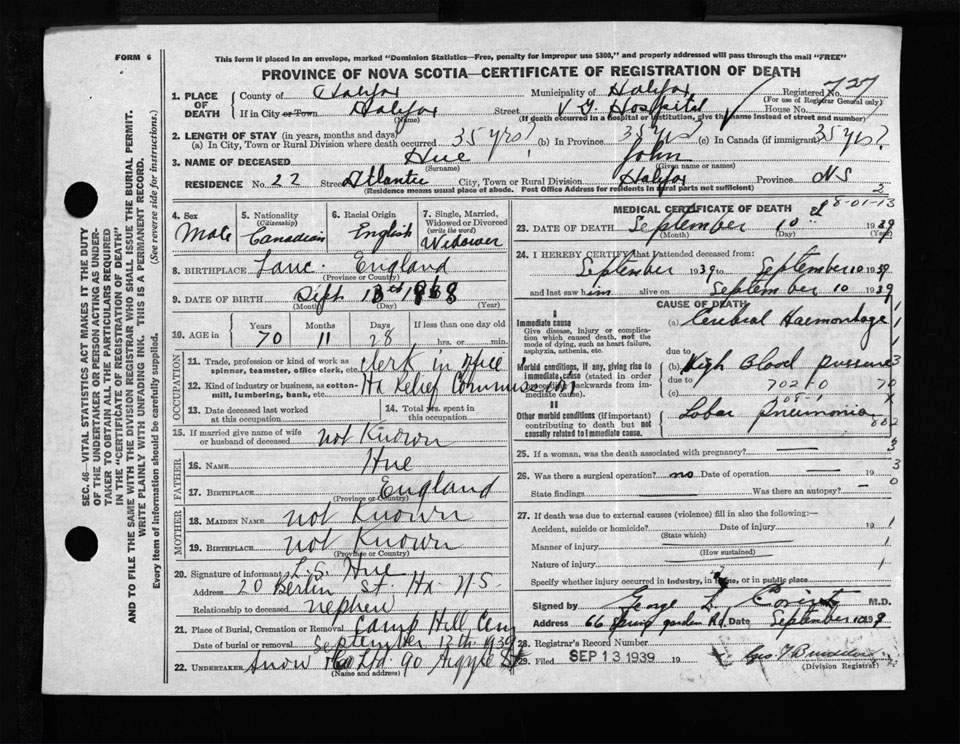 FORM 6
This form if placed in an envelope, marked "Dominion Statistics—Free, penalty for improper use $300," and properly addressed will pass through the mail "FREE"
PROVINCE OF NOVA SCOTIA—CERTIFICATE OF REGISTRATION OF DEATH
SEC. 46—VITAL STATISTICS ACT MAKES IT THE DUTY
OF THE UNDERTAKER OR PERSON ACTING AS UNDER-
TAKER TO OBTAIN ALL THE PARTICULARS REQUIRED
IN THE "CERTIFICATE OF REGISTRATION OF DEATH"
AND TO FILE THE SAME WITH THE DIVISION REGISTRAR WHO SHALL ISSUE THE BURIAL PERMIT.
WRITE PLAINLY WITH UNFADING INK. THIS IS A PERMANENT RECORD.
Every item of information should be carefully supplied. (See reverse side for instructions.)
1. PLACE OF DEATH County of Halifax Municipality of Halifax Registered No. 727
(For use of Registrar General only)
If in City or Town Halifax Street V.G. Hospital House No.
(Name) (If death occurred in a hospital or institution, give the name instead of street and number)
2. LENGTH OF STAY (in years, months and days)
(a) In City, Town or Rural Division where death occurred 35 yrs? (b) In Province 35 yrs? (c) In Canada (if immigrant) 35 yrs?
3. NAME OF DECEASED Hue John
(Surname) (Given name or names)
RESIDENCE No. 22 Street Atlantic City, Town or Rural Division Halifax Province N S
(Residence means usual place of abode. Post Office Address for residents in rural parts not sufficient)
2
8-01-13
4. Sex Male
5. Nationality (Citizenship) Canadian
6. Racial Origin English
7. Single, Married, Widowed or Divorced (write the word) Widower
8. BIRTHPLACE Lanc. England
(Province or Country)
9. DATE OF BIRTH Sept 13th 1868
(Month) (Day) (Year)
10. AGE in Years 70 Months 11 Days 28 If less than one day old hrs. or min.
OCCUPATION
11. Trade, profession or kind of work as spinner, teamster, office clerk, etc. Clerk in office
12. Kind of industry or business, as cotton-mill, lumbering, bank, etc. Hx Relief Commission
13. Date deceased last worked at this occupation
14. Total yrs. spent in this occupation
15. If married give name of wife or husband of deceased not Known
FATHER
16. NAME Hue
17. BIRTHPLACE England
(Province or Country)
MOTHER
18. MAIDEN NAME not Known
19. BIRTHPLACE not Known
(Province or Country)
20. Signature of informant L. S. Hue
Address 20 Berlin St. Hx N S.
Relationship to deceased nephew
21. Place of Burial, Cremation or Removal Camp Hill Cem
Date of burial or removal September 12th 1939
22. UNDERTAKER Snow & Co Ltd. 90 Argyle St
(Name and address)
MEDICAL CERTIFICATE OF DEATH
23. DATE OF DEATH September 10 1939
(Month) (Day) (Year)
24. I HEREBY CERTIFY that I attended deceased from:
September 1939 to September 10 1939
and last saw him alive on September 10 1939
CAUSE OF DEATH
I
Immediate cause
Give disease, injury or complication which caused death, not the mode of dying, such as heart failure, asphyxia, asthenia, etc.
(a) Cerebral Haemorrhage
due to
Morbid conditions, if any, giving rise to immediate cause (stated in order proceeding backwards from immediate cause).
(b) High Blood pressure
due to
(c) 70210
II
Other morbid conditions (if important) contributing to death but not causally related to immediate cause.
Lobar pneumonia
25. If a woman, was the death associated with pregnancy?
26. Was there a surgical operation? no Date of operation 19
State findings Was there an autopsy?
27. If death was due to external causes (violence) fill in also the following:—
Accident, suicide or homicide? Date of injury 19
(State which)
Manner of injury
(How sustained)
Nature of injury
Specify whether injury occurred in industry, in home, or in public place
Signed by George L. M.D.
Address 66 Spring garden Rd. Date September 1939
28. Registrar's Record No.
29. Filed SEP 13 1939 19
(Division Registrar)